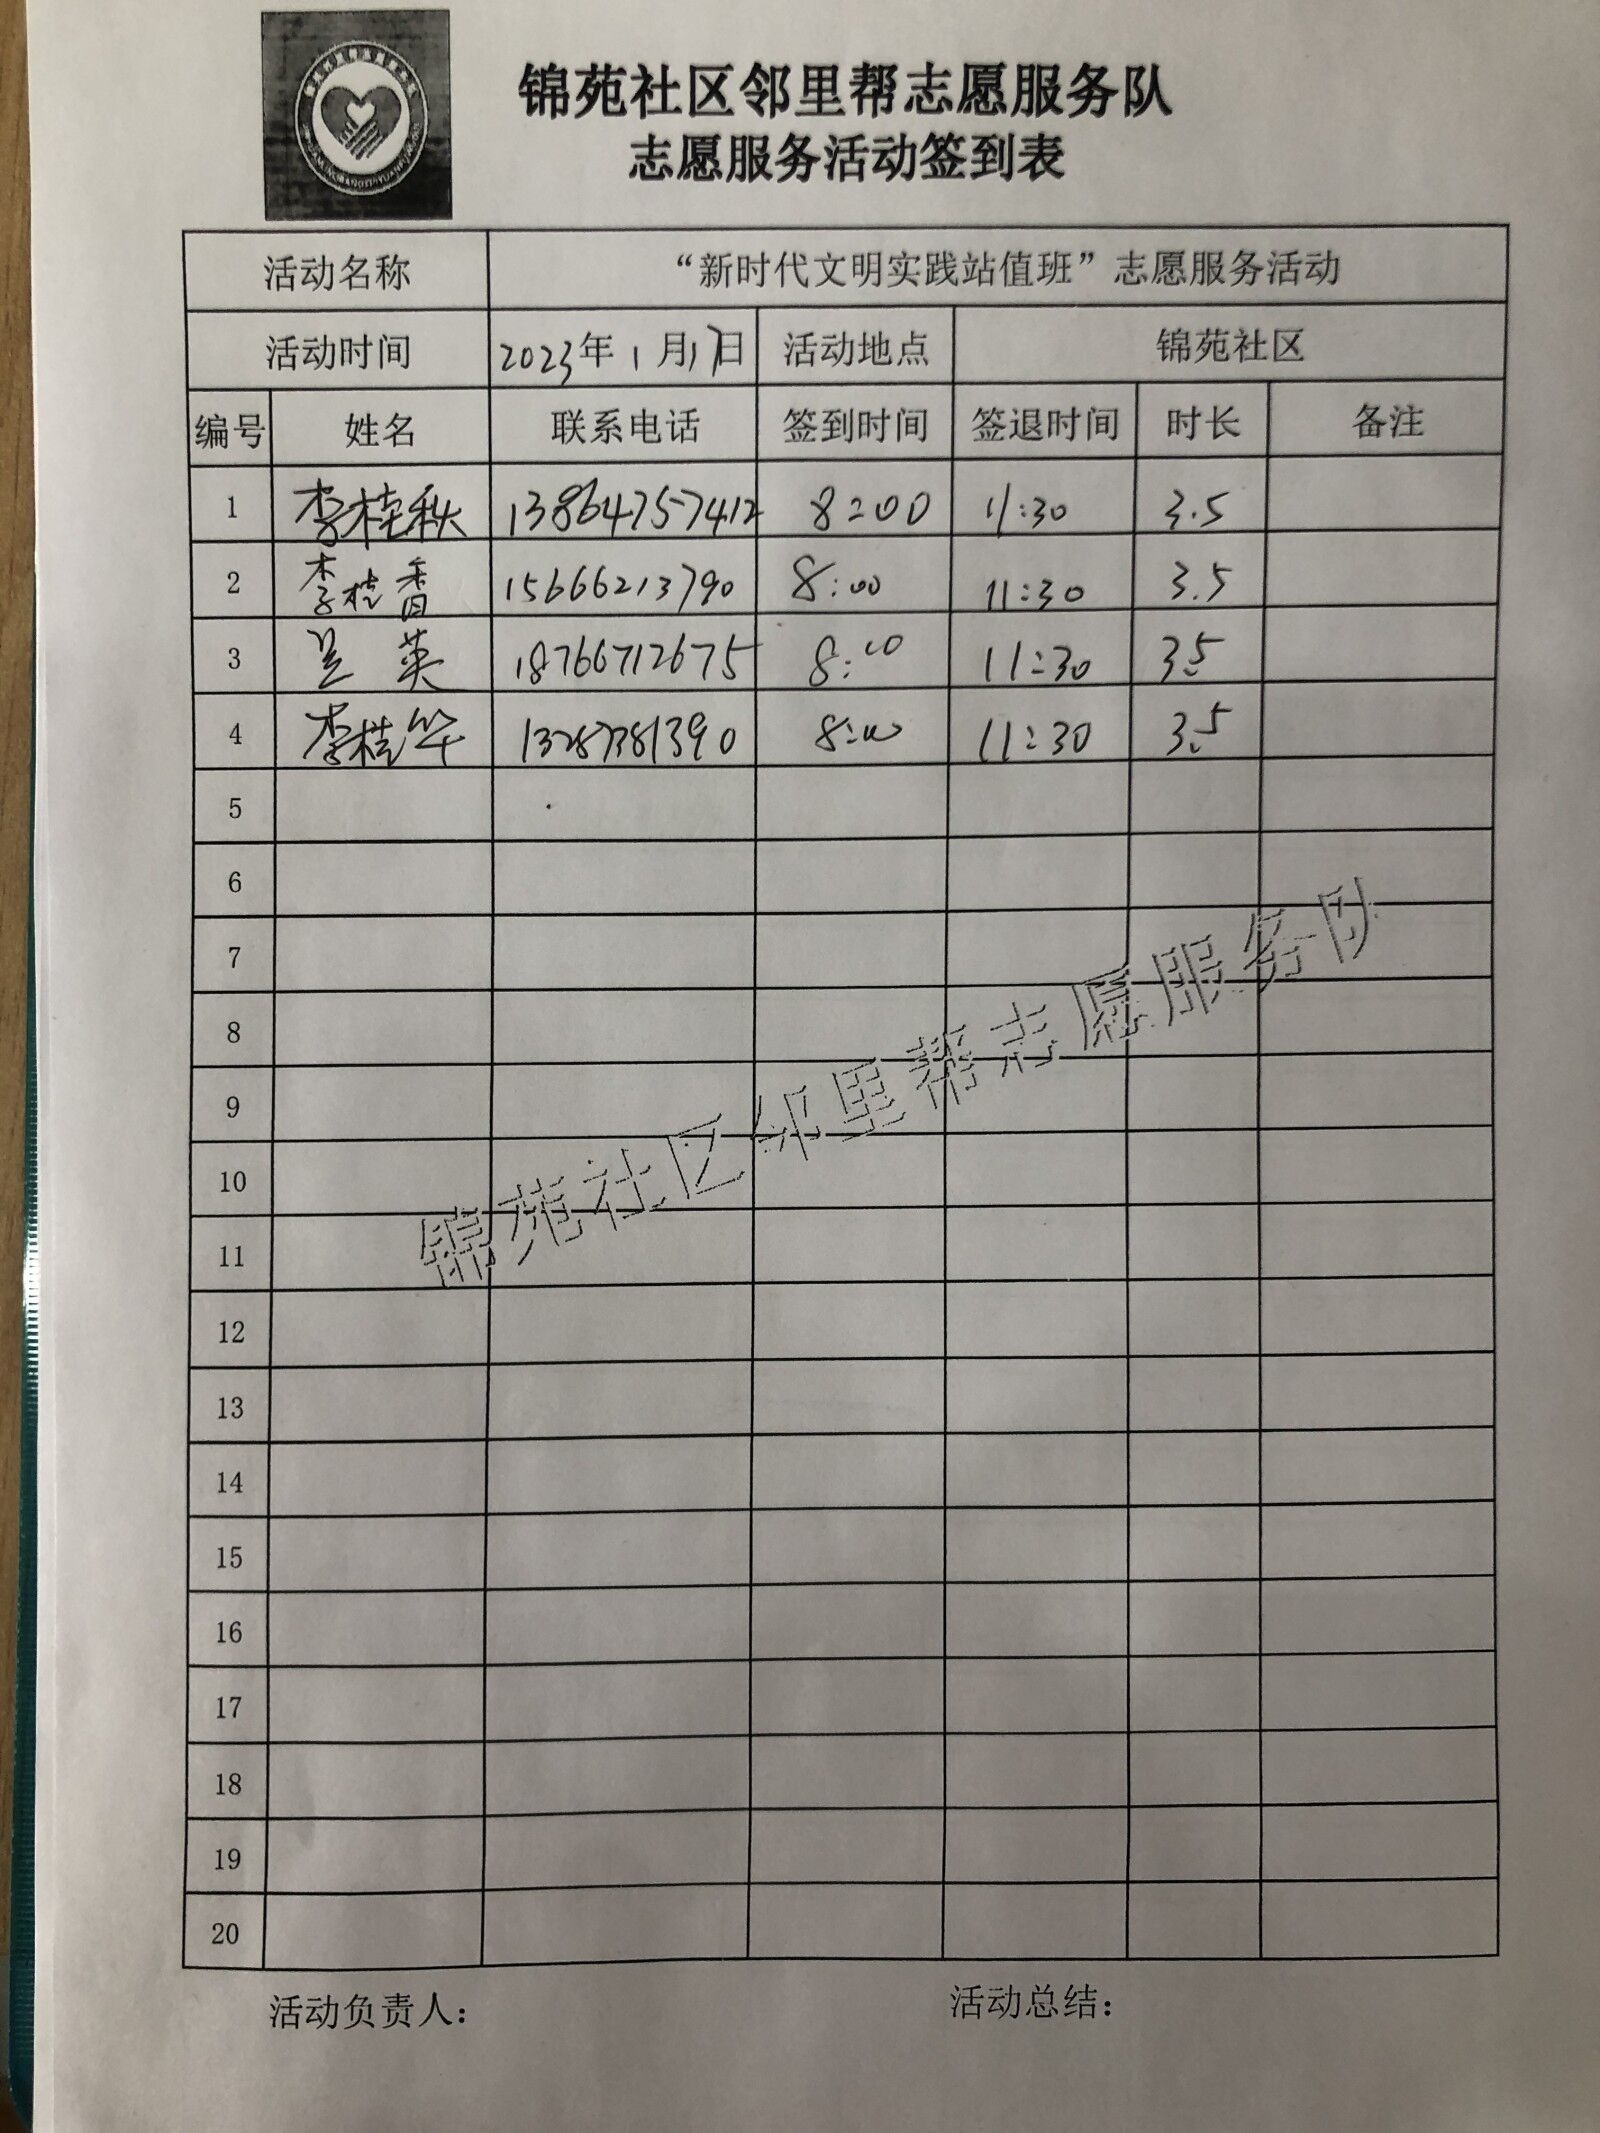 锦苑社区邻里帮志愿服务队
志愿服务活动签到表
活动名称 “新时代文明实践站值班”志愿服务活动
活动时间 2023年1月17日 活动地点 锦苑社区
编号 姓名 联系电话 签到时间 签退时间 时长 备注
1 李桂秋 13864757412 8:00 11:30 3.5
2 李桂香 15666213790 8:00 11:30 3.5
3 吴英 18766712675 8:00 11:30 3.5
4 李桂华 13287381390 8:00 11:30 3.5
5
6
7
8
9
10
11
12
13
14
15
16
17
18
19
20
锦苑社区邻里帮志愿服务队
活动负责人: 活动总结: